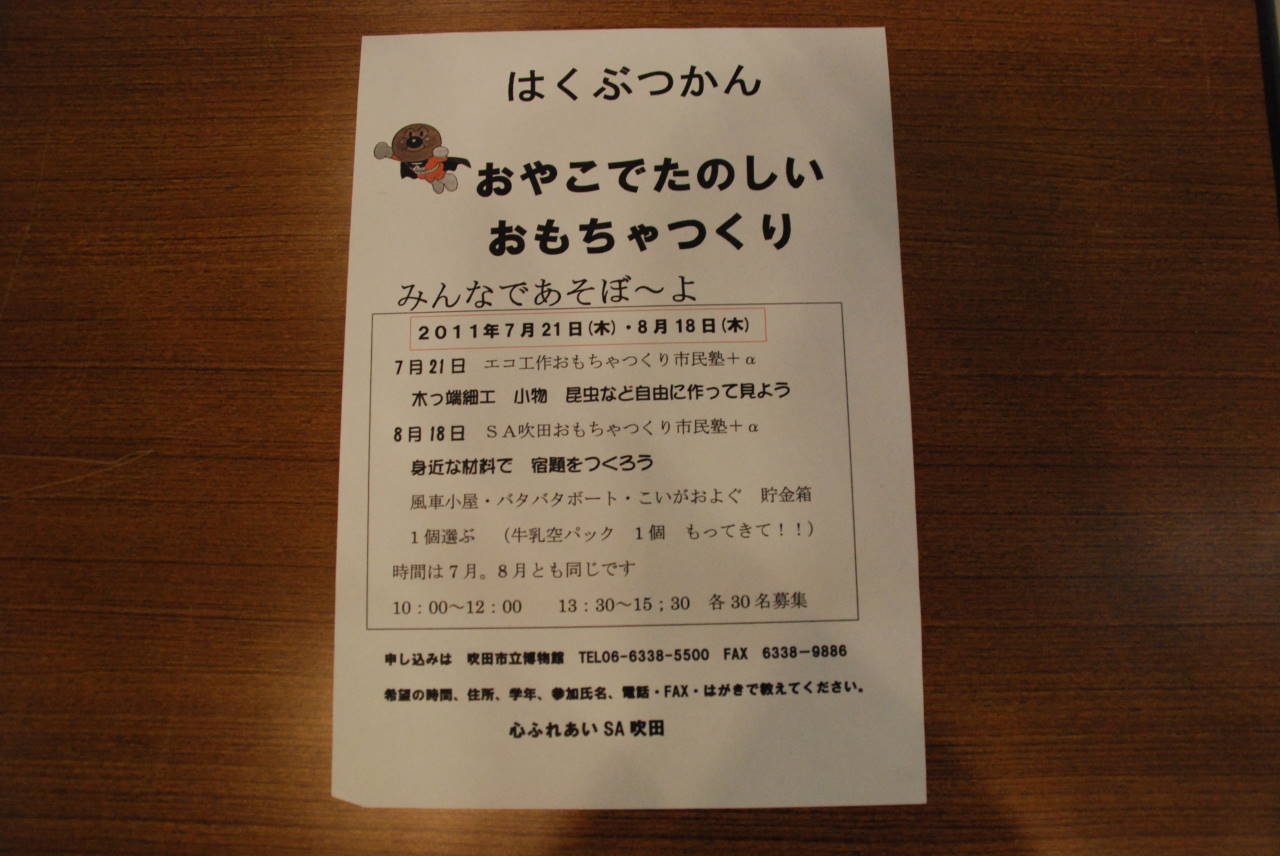 はくぶつかん
おやこでたのしい
おもちゃつくり
みんなであそぼ～よ
２０１１年７月２１日(木)・８月１８日(木)
７月２１日　エコ工作おもちゃつくり市民塾＋α
木っ端細工　小物　昆虫など自由に作って見よう
８月１８日　ＳＡ吹田おもちゃつくり市民塾＋α
身近な材料で　宿題をつくろう
風車小屋・バタバタボート・こいがおよぐ　貯金箱
１個選ぶ　（牛乳空パック　１個　もってきて！！）
時間は７月。８月とも同じです
10：00～12：00　　13：30～15；30　各30名募集
申し込みは　吹田市立博物館　TEL06-6338-5500　FAX　6338－9886
希望の時間、住所、学年、参加氏名、電話・FAX・はがきで教えてください。
心ふれあい SA 吹田